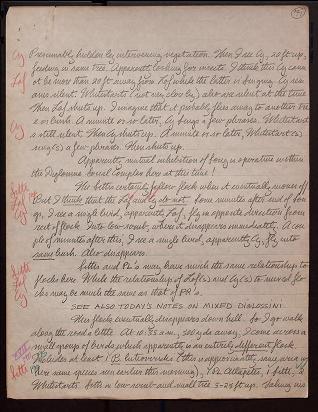 Presumably hidden by intervening vegetation. Then I see Cy, 20 ft up,
Cy
feeding in same tree. Apparently looking for insects. I think this Cy cannot
Laf
be more than 20 ft away from Laf while the latter is singing. Cy remains
silent. Whitestarts (not very close by) also are silent at the time.
Then Laf shuts up. I imagine that it probably flies away to another tree
or bush. A minute or so later, Cy sings a few phrases. Whitestart
Cy
is still silent. Then Cy shuts up. A minute or so later, Whitestart(s)
sing(s) a few phrases. Then shuts up.
Apparently, mutual inhibition of song is operative within
the Diglossa Complex here at this time!
The Sitta certainly follow flock when it eventually moves off
Sitta
Laf
Cy
But I think that the Laf and Cy do not. Some minutes after end of
song, I see a single bird, apparently Laf, fly in opposite direction from
rest of flock. Into low scrub, where it disappears immediately. A couple
of minutes after this, I see a single bird, apparently Cy, fly into
same bush. Also disappears.
Sitta
Laf
Cy
Sitta and PR's may have much the same relationship to
flocks here. While the relationship of Laf(s) and Cy(s) to mixed flocks
may be much the same as that of PR's.
SEE ALSO TODAY'S NOTES ON MIXED DIGLOSSINI
This flock eventually disappears down hill. So I go walk
along the road a little. At 10:35 a.m., 200 yds away, I come across a
small group of birds which apparently is an entirely different flock.
Sitta
Includes at least 1 B. luteoviridis (this is approximately same area where
same species seen earlier this morning), 1 or 2 Atlapetes, 1 Sitta, 2
Whitestarts. Sitta in low scrub and small tree 3-25 ft up. Taking insects